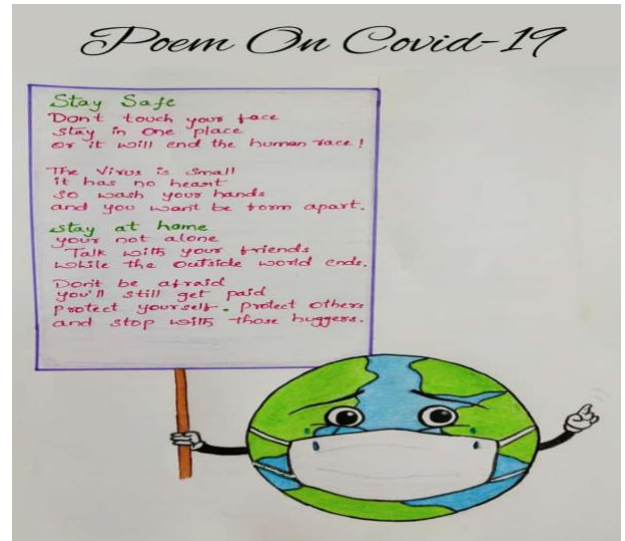 Poem On Covid-19
Stay Safe
Don't touch your face
stay in one place
or it will end the human race!
The Virus is small
it has no heart
so wash your hands
and you wont be torn apart.
stay at home
your not alone
Talk with your friends
while the outside world ends.
Don't be afraid
you'll still get paid
protect yourself. protect others
and stop with those huggers.